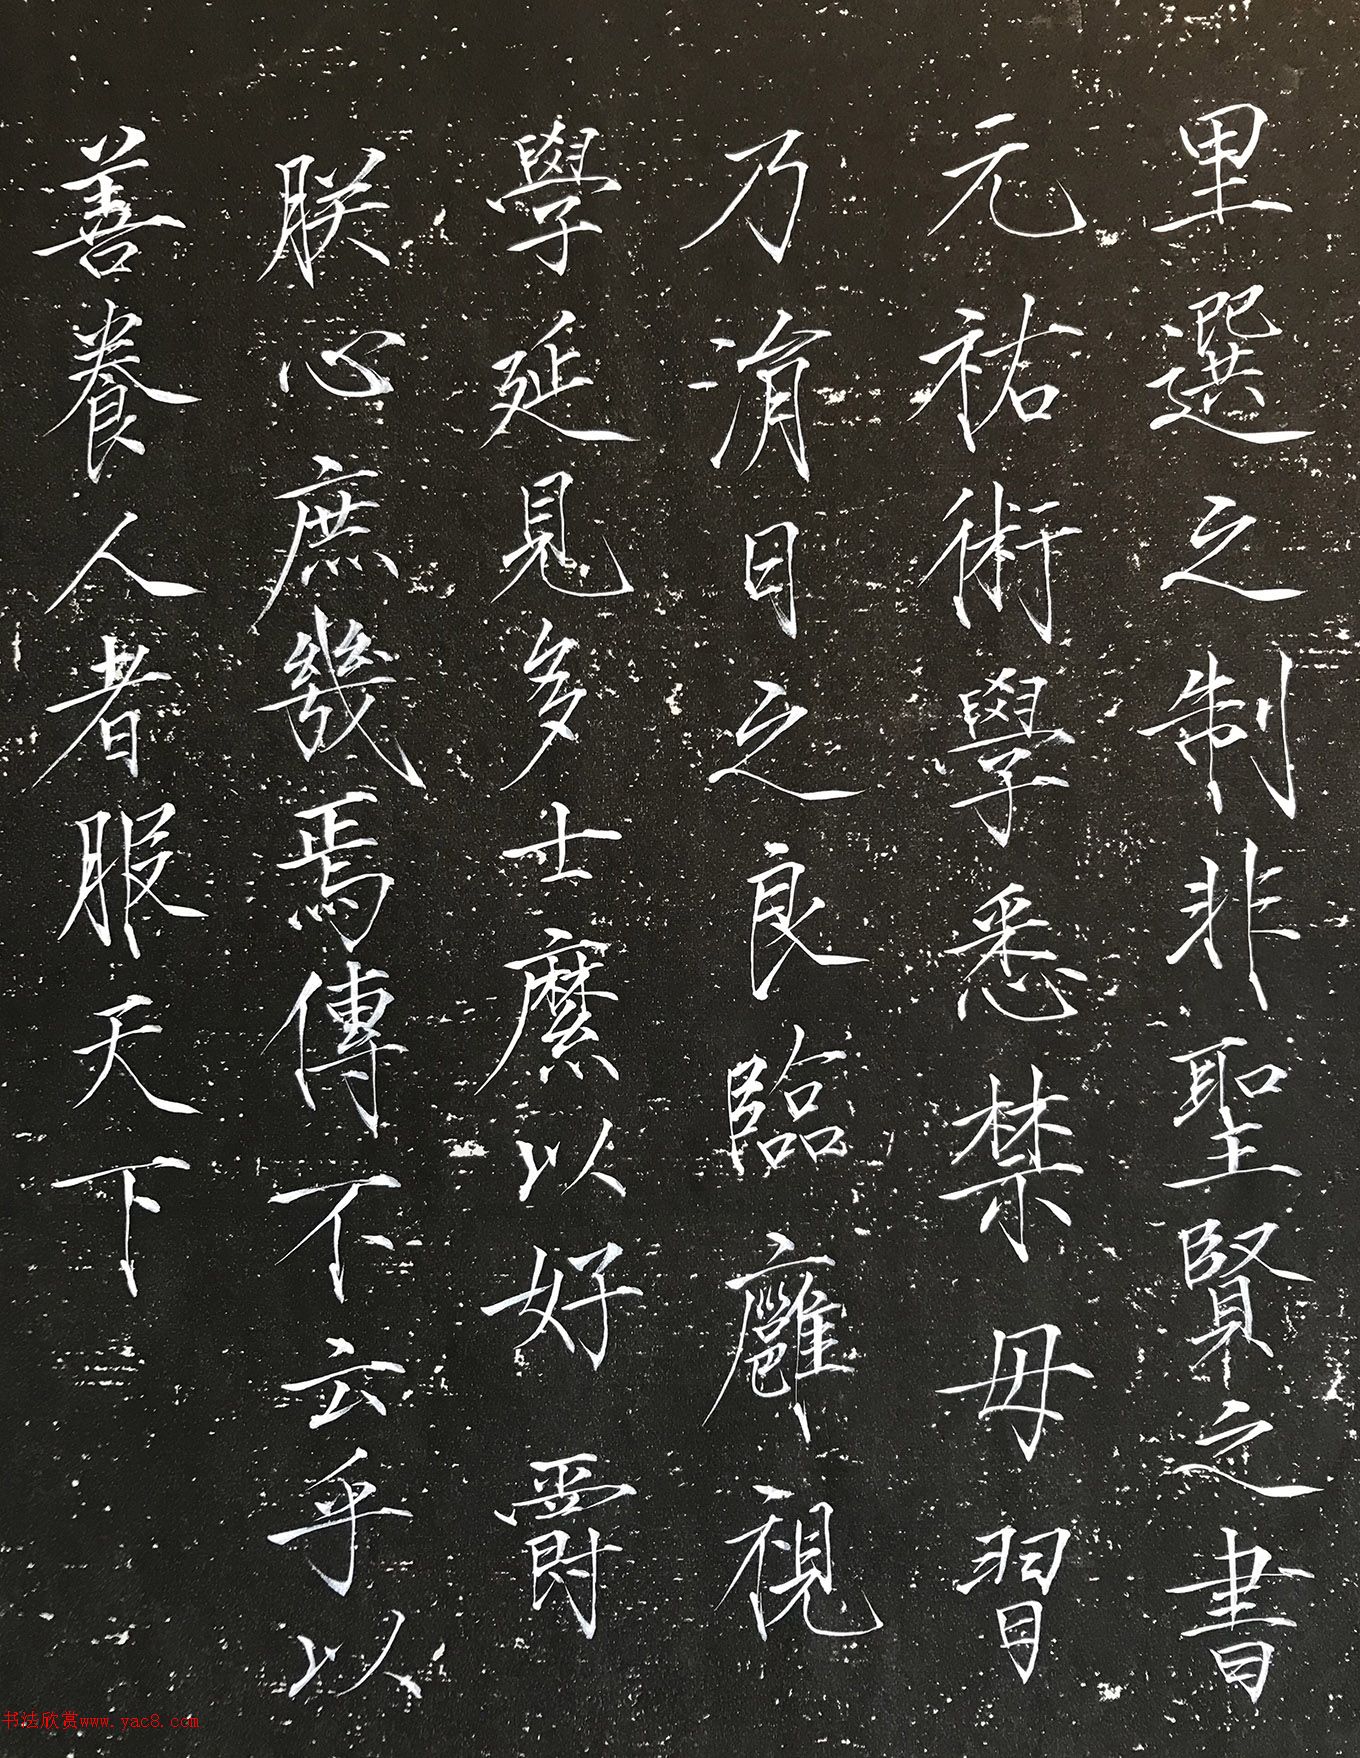 里選之制非聖賢之書
元祐術學悉禁毋習
乃涓日之良臨廱視
學延見多士縻以好爵
朕心庶幾焉傳不云乎以
善養人者服天下
书法欣赏www.yac8.com